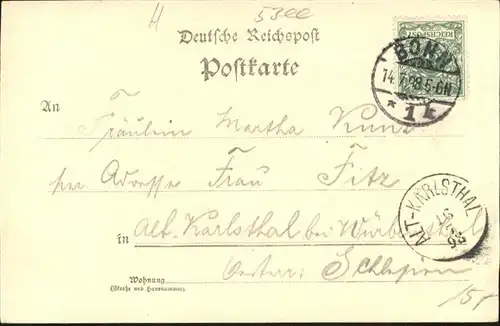 H 5300
Deutsche Reichspost
Postkarte
REICHSPOST
BONN
14 5-6N
* 1 k
An Fräulein Martha Kunz
per Adresse Frau Fitz
in Alt-Karlsthal bei
Oesterr: Schlesien
Wohnung
(Straße und Hausnummer)
ALT-KARLSTHAL
15,-